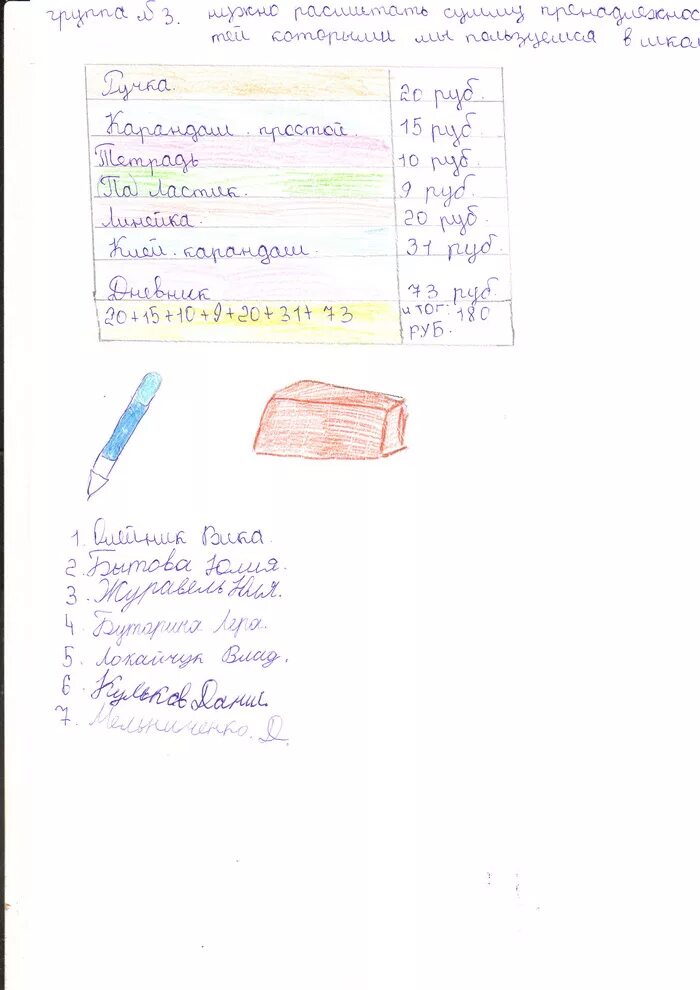 группа №3. нужно расшитать сумму пренадлежнос
тей которыми мы пользуемся в школ
Ручка. 20 руб.
Карандаш простой. 15 руб.
Тетрадь 10 руб.
Па Ластик. 9 руб.
Линейка. 20 руб.
Клей карандаш. 31 руб.
Дневник 73 руб
20+15+10+9+20+31+73 итог: 180
РУБ.
1. Олейник Вика.
2. Бытова Юлия.
3. Журавель Юля.
4 Буторина Лера.
5. Локайчук Влад.
6 Кульков Данил.
7. Мельниченко. Д.